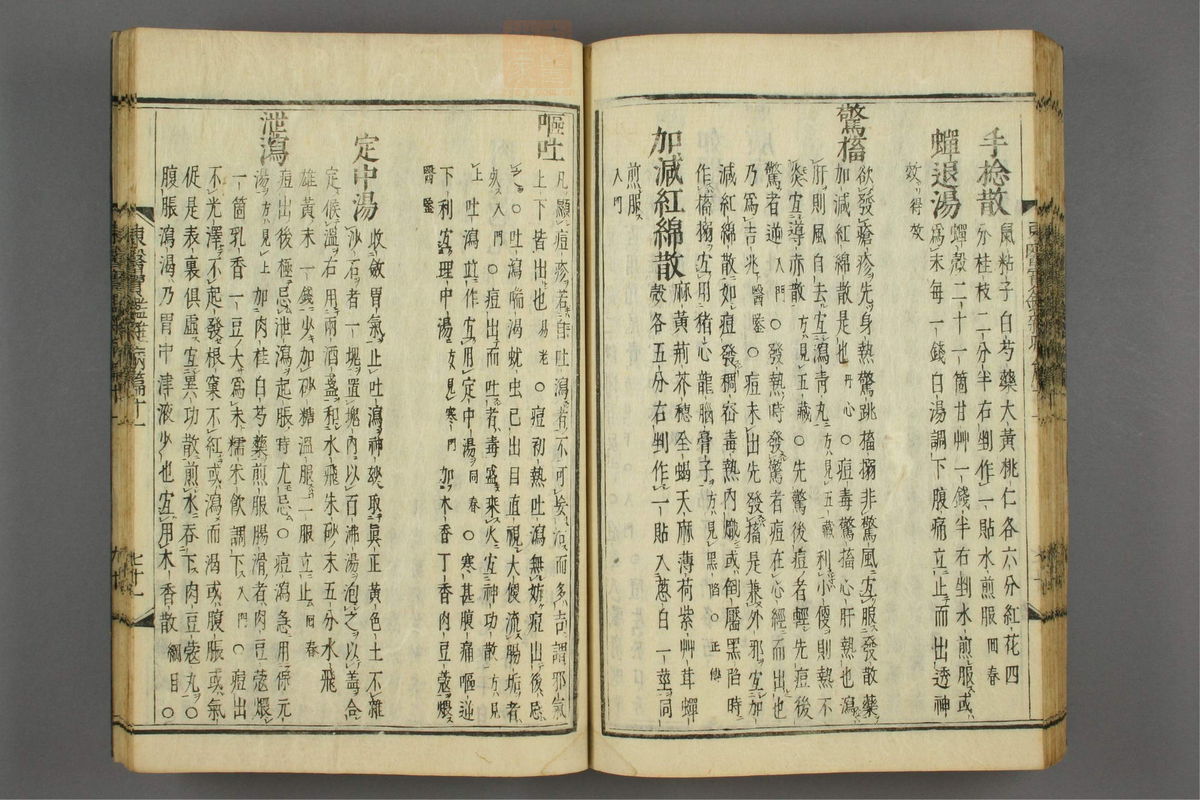 手捻散 鼠粘子白芍藥大黃桃仁各六分紅花四
分桂枝二分半右剉作一貼水煎服 回春
蟬退湯 蟬殼二十一箇甘艸一錢半右剉水煎服或
爲末每一錢白湯調下腹痛立止而出透神
效 得效
驚搐 欲發瘡疹先身熱驚跳搐搦非驚風宜服發散藥
加減紅綿散是也 丹心 ○痘毒驚搐心肝熱也瀉
肝則風自去宜瀉靑丸 方見五藏 利小便則熱不
炎宜導赤散 方見五藏 ○先驚後痘者輕先痘後
驚者逆 入門 ○發熱時發驚者痘在心經而出也
乃爲吉兆 醫鑒 ○痘未出先發搐是兼外邪宜加
減紅綿散如痘發稠密毒熱內熾或倒黶黑陷時
作搐搦宜用猪心龍腦膏子 方見黑陷 ○ 正傳
加減紅綿散 麻黃荊芥穗全蝎天麻薄荷紫艸茸蟬
殼各五分右剉作一貼入葱白一莖同
煎服
入門
嘔吐 凡顯痘疹若自吐瀉者不可妄治而多吉謂邪氣
上下皆出也 易老 ○痘初熱吐瀉無妨痘出後忌
之 ○吐瀉喘渴蚘虫已出目直視大便流腸垢者
死 入門 ○痘出而吐者毒盛乘火宜神功散 方見
上 吐瀉並作宜用定中湯 回春 ○寒甚腹痛嘔逆
下利宜理中湯 方見寒門 加木香丁香肉豆蔲煨
醫鑒
定中湯 收斂胃氣止吐瀉神妙取眞正黃色土不雜
沙石者一塊置塊內以百沸湯泡之以盖合
定候溫右用兩酒盞和水飛朱砂末五分水飛
雄黃末一錢少加砂糖溫服二服立止 回春
泄瀉 痘出後極忌泄瀉起脹時尤忌○痘瀉急用保元
湯 方見上 加肉桂白芍藥煎服腸滑者肉豆蔲煨
一箇乳香一豆大爲末糯米飮調下 入門 ○痘出
不光澤不起發根窠不紅或瀉而渴或腹脹或氣
促是表裏俱虛宜異功散煎水吞下肉豆蔲丸○
腹脹瀉渴乃胃中津液少也宜用木香散 綱目 ○
東醫寶鑑雜病篇十一